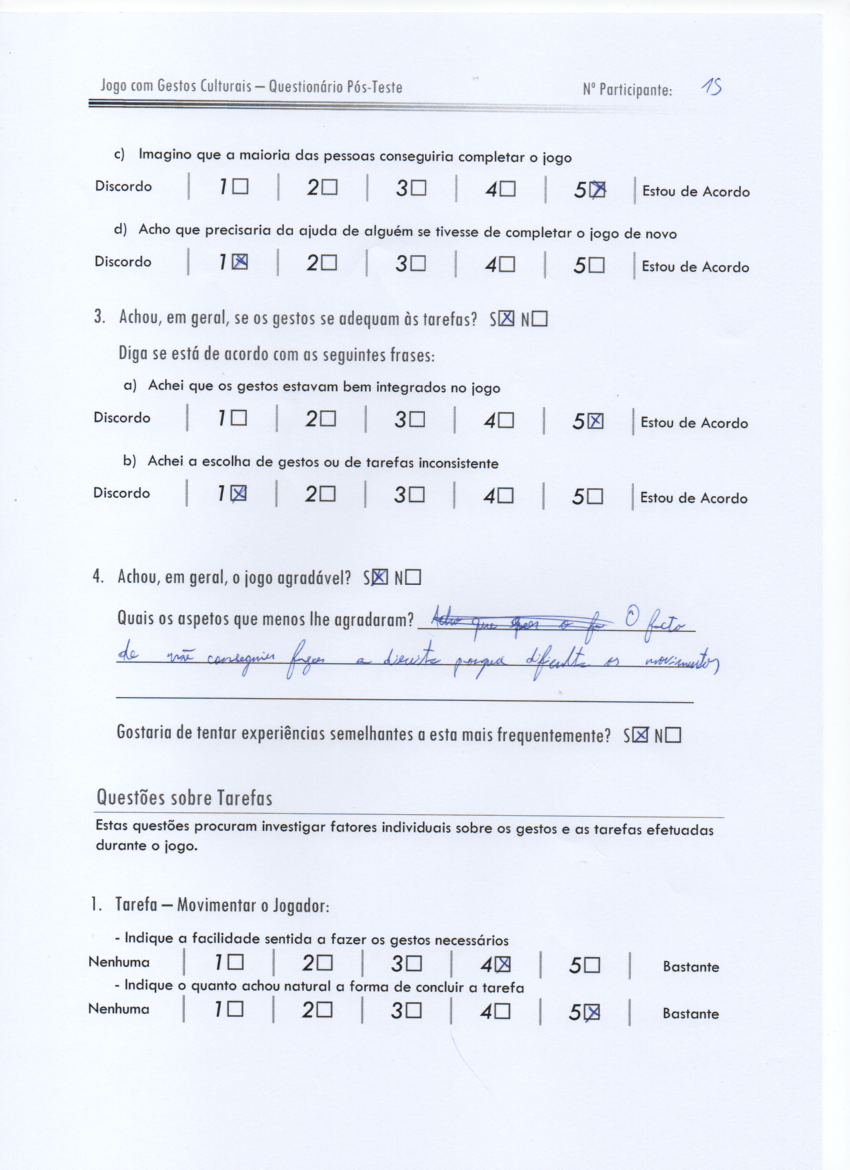 Jogo com Gestos Culturais – Questionário Pós-Teste Nº Participante: 15
c) Imagino que a maioria das pessoas conseguiria completar o jogo
Discordo 1☐ 2☐ 3☐ 4☐ 5☒ Estou de Acordo
d) Acho que precisaria da ajuda de alguém se tivesse de completar o jogo de novo
Discordo 1☒ 2☐ 3☐ 4☐ 5☐ Estou de Acordo
3. Achou, em geral, se os gestos se adequam às tarefas? S☒ N☐
Diga se está de acordo com as seguintes frases:
a) Achei que os gestos estavam bem integrados no jogo
Discordo 1☐ 2☐ 3☐ 4☐ 5☒ Estou de Acordo
b) Achei a escolha de gestos ou de tarefas inconsistente
Discordo 1☒ 2☐ 3☐ 4☐ 5☐ Estou de Acordo
4. Achou, em geral, o jogo agradável? S☒ N☐
Quais os aspetos que menos lhe agradaram? Acho que O facto
de não conseguir a direita porque dificulta os movimentos
Gostaria de tentar experiências semelhantes a esta mais frequentemente? S☒ N☐
Questões sobre Tarefas
Estas questões procuram investigar fatores individuais sobre os gestos e as tarefas efetuadas
durante o jogo.
1. Tarefa – Movimentar o Jogador:
- Indique a facilidade sentida a fazer os gestos necessários
Nenhuma 1☐ 2☐ 3☐ 4☒ 5☐ Bastante
- Indique o quanto achou natural a forma de concluir a tarefa
Nenhuma 1☐ 2☐ 3☐ 4☐ 5☒ Bastante